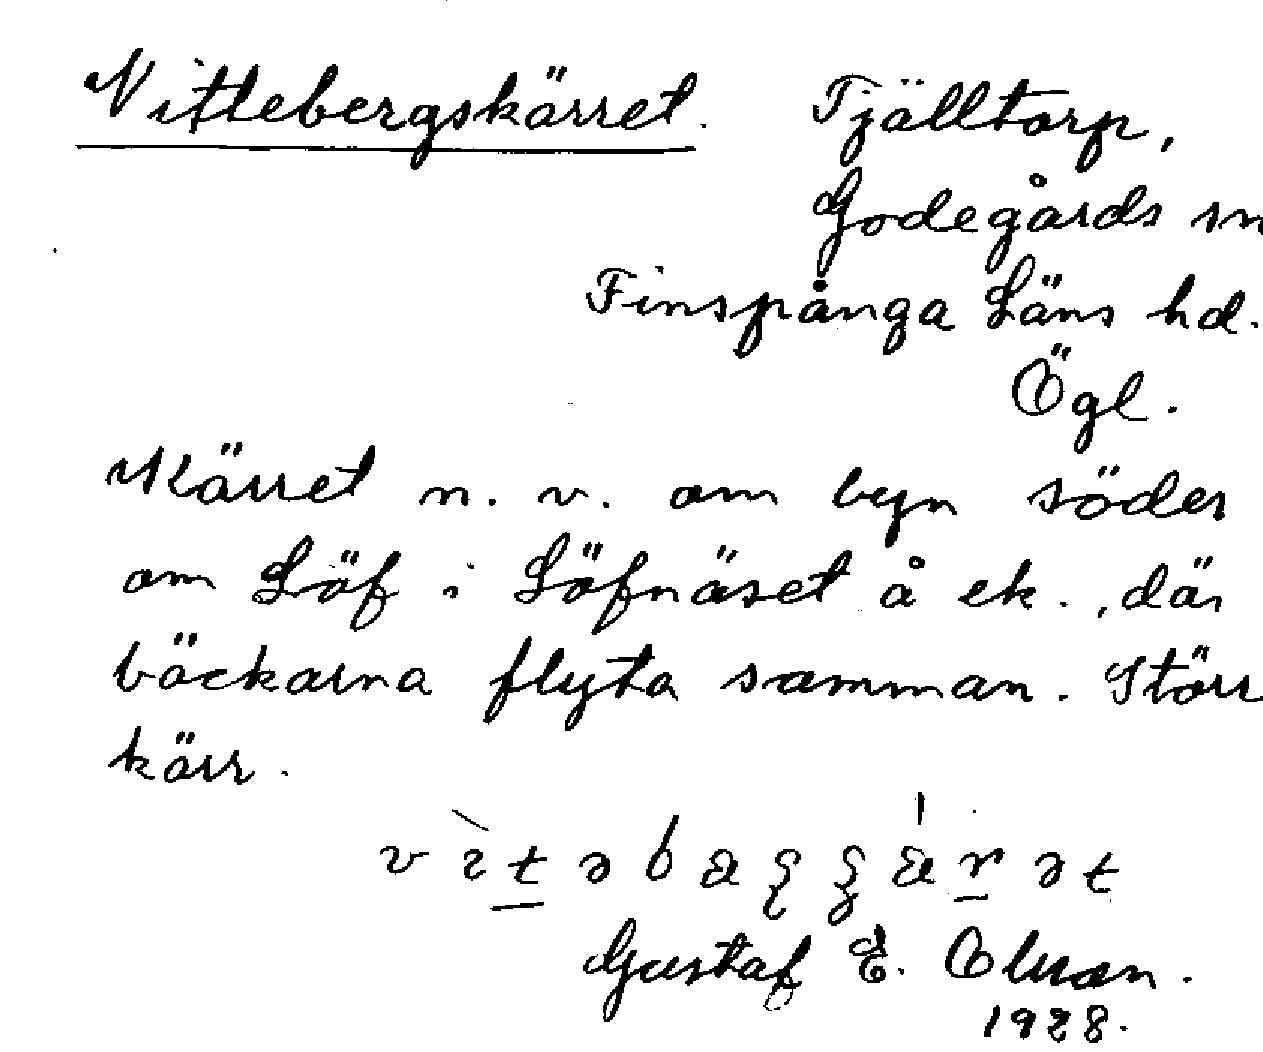 Vittebergskärret. Tjälltorp,
Godegårds sn
Finspånga Läns hd.
Ögl.
Kärret n. v. om byn söder
om Löf i Löfnäset å ek., där
böckarna flyta samman. Störr
kärr.
Gustaf E.
1928.